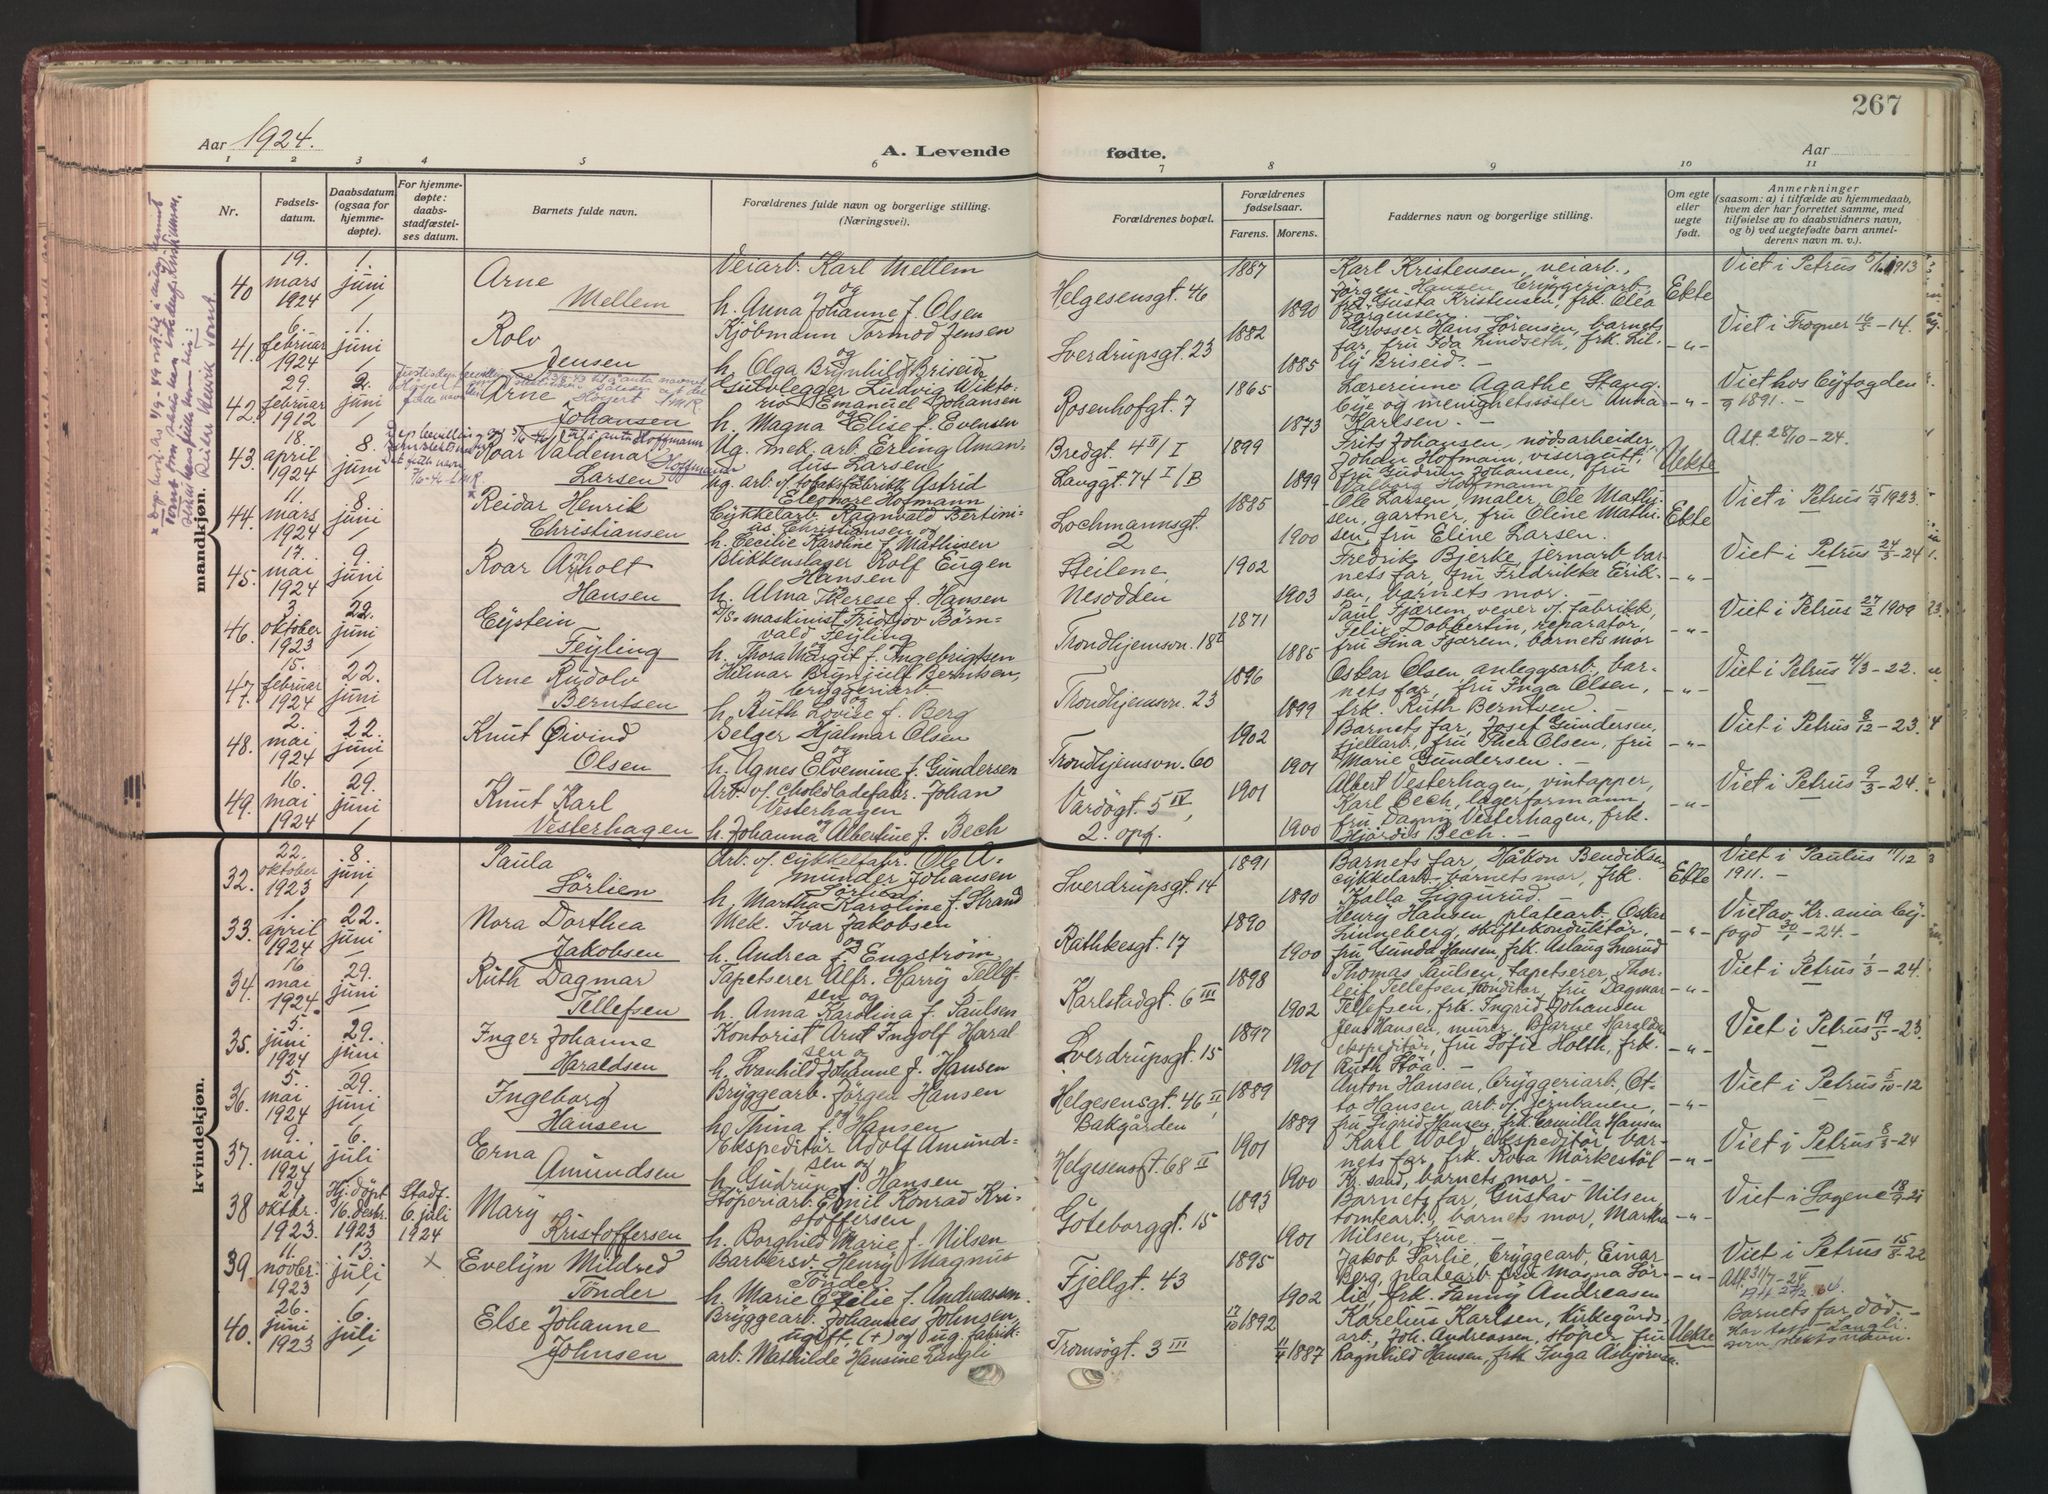 267
Aar 1924.
A. Levende
fødte.
Aar
1 2 3 4 5 6 7 8 9 10 11
Nr.
Fødsels-
datum.
Daabsdatum
(ogsaa for
hjemme-
døpte).
For hjemme-
døpte:
daabs-
stadfæstel-
ses datum.
Barnets fulde navn.
Forældrenes fulde navn og borgerlige stilling.
(Næringsvei).
Forældrenes bopæl.
Forældrenes
fødselsaar.
Farens. Morens.
Faddernes navn og borgerlige stilling.
Om egte
eller
uegte
født.
Anmerkninger
(saasom: a) i tilfælde av hjemmedaab,
hvem der har forrettet samme, med
tilføielse av to daabsvidners navn,
og b) ved uegtefødte barn anmel-
derens navn m. v.).
mandkjøn.
40 19. mars 1924 1. juni Arne Mellem
Veiarb. Karl Mellem
og
h. Anna Johanne f. Olsen
Helgesensgt. 46
1887 1890
Karl Kristensen, veiarb.,
Jørgen Hansen, bryggeriarb.,
fru Gusta Kristensen, frk. Olea
Jørgensen
Ekte
Viet i Petrus 1913
41. 6. februar 1924 1. juni Rolv Jensen
Kjøbmann Tormod Jensen
og
h. Olga Brynhild Briseid
Sverdrupsgt. 23
1882 1885
Grosser Hans Sørensen, barnets
far, fru Ida Lindseth, frk. Lil-
ly Briseid. -
-"-
Viet i Frogner 16/5 - 14.
42. 29. februar 1912 2. juni Arne Johansen
Sølvlegger Ludvig Wikto-
rio Emanuel Johansen
og
h. Magna Elise f. Evensen
Rosenhofgt. 7
1865 1873
Lærerinne Agathe Stang-
Bye og menighetssøster Anna
Karlsen. -
-"-
Viet hos Byfogden
1891. -
43. 18. april 1924 8. juni Roar Valdemar Larsen
Hoffmann
Ug. mek. arb. Erling Aman-
dus Larsen
ug. arb. v. tobaksfabrikk Astrid
Eleonore Hofmann
Bredgt. 4 II / I
Langgt. 74 I / B
1899 1899
Frits Johansen, nødsarbeider,
Johan Hofmann, visergutt,
fru Gudrun Johansen, fru
Valborg Hoffmann
Uekte
Att. 28/10 - 24.
44. 11. mars 1924 8. juni Reidar Henrik Christiansen
Cykkelarb. Ragnvald Bertini-
us Christiansen og
h. Cecilie Karoline f. Mathisen
Lochmannsgt.
2
1885 1900
Ole Larsen, maler, Ole Mathi-
sen, gartner, fru Oline Mathi-
sen, fru Eline Larsen.
Ekte
Viet i Petrus 15/9 1923.
45. 17. mai 1924 9. juni Roar Arnholt Hansen
Blikkenslager Rolf Eugen
Hansen
h. Alma Therese f. Hansen
Steilene,
Nesodden
1902 1903
Fredrik Bjerke, jernarb. bar-
nets far, fru Fredrikke Erik-
sen, barnets mor. -
-"-
Viet i Petrus 24/3 - 24
46. 3. oktober 1923 22. juni Eystein Feyling
D/S-maskinist Fridtjov Børn-
vald Feyling
og
h. Thora Margit f. Ingebrigtsen
Trondhjemsvn. 18 I
1871 1885
Paul Fjærem, vever v. fabrikk,
Felix Dobbertin, reparatør,
fru Gina Fjærem, barnets mor
-"-
Viet i Petrus 27/2 1909
47. 15. februar 1924 22. juni Arne Rudolv Berntsen
Helmar Brynjulf Berntsen,
bryggeriarb.
og
h. Ruth Lovise f. Berg
Trondhjemsvn. 23
1896 1899
Oskar Olsen, anleggsarb., bar-
nets far, fru Inga Olsen,
frk. Ruth Berntsen. -
-"-
Viet i Petrus 4/3 - 22.
48. 2. mai 1924 22. juni Knut Øivind Olsen
Selger Hjalmar Olsen
og
h. Agnes Elvemine f. Gundersen
Trondhjemsvn. 60
1902 1901
Barnets far, Josef Gundersen,
fjellarb., fru Thea Olsen, fru
Marie Gundersen. -
-"-
Viet i Petrus 8/12 - 23.
49. 16. mai 1924 29. juni Knut Karl Vesterhagen
Arb. v. chokoladefabr. Johan
Vesterhagen
og
h. Johanna Albertine f. Bech
Vardøgt. 5 IV,
2. opg.
1901 1900
Albert Vesterhagen, vintapper,
Karl Bech, lagerformann,
fru Dagny Vesterhagen, frk.
Hjørdis Bech. -
-"-
Viet i Petrus 9/3 - 24.
kvindekjøn.
32. 22. oktober 1923 8. juni Paula Sørlien
Arb. v. cykkelfabr. Ole A-
munder Johansen
Sørlien
h. Martha Karoline f. Strand
Sverdrupsgt. 14
1891 1890
Barnets far, Håkon Bendiksen
cykkelarb., barnets mor, frk.
Kalla Siggurud. -
Ekte
Viet i Paulus 17/12
1911. -
33. 1. april 1924 22. juni Nora Dorthea Jakobsen
Mek. Ivar Jakobsen
og
h. Andrea f. Engstrøm
Rathkesgt. 17
1890 1900
Henry Hansen, platearb. Oskar
Linneberg, skiftekonduktør,
fru Gunda Hansen, frk. Aslaug Snarud
-"-
Viet av Kr.ania By-
fogd 30/1 - 24. -
34. 16 mai 1924. 29. juni Ruth Dagmar Tellefsen
Tapetserer Alfr. Harry Tellef-
sen og
h. Anna Karolina f. Paulsen
Karlstadgt. 6 III
1898 1902
Thomas Paulsen, tapetserer, Thor-
leif Tellefsen, konditor, fru Dagmar
Tellefsen, frk. Ingrid Johansen
-"-
Viet i Petrus 1/3 - 24.
35. 5. juni 1924 29. juni Inger Johanne Haraldsen
Kontorist Arnt Ingolf Haral-
sen og
h. Svanhild Johanne f. Hansen
Sverdrupsgt. 15
1897 1901
Jens Hansen, murer, Bjarne Haralds
ekspeditør, fru Sofie Holth, frk.
Ruth Støa
-"-
Viet i Petrus 19/5 - 23.
36. 5. mai 1924 29. juni Ingeborg Hansen
Bryggearb. Jørgen Hansen
og
h. Thina f. Hansen
Helgesensgt. 46 II,
Bakgården
1889 1889
Anton Hansen, bryggeriarb., Ot-
to Hansen, arb. v. jernbanen,
fru Sigrid Hansen, frk. Camilla Hansen
-"-
Viet i Petrus 5/10 - 12
37. 9. mai 1924 6. juli Erna Amundsen
Ekspeditør Adolf Amund-
sen og
h. Gudrun f. Hansen
Helgesensgt. 68 II
1901 1900
Karl Wold, ekspeditør, bar-
nets far, frk. Rosa Mørkestøl
Kr.sand, barnets mor. -
-"-
Viet i Petrus 8/3 - 24
38 24 oktbr. 1923. Hj.døpt 16. desbr. 1923 Stadf. 6. juli 1924 Mary Kristoffersen
Støperiarb. Emil Konrad Kri-
stoffersen
h. Borghild Marie f. Nilsen
Gøteborggt. 15
1893 1901
Barnets far, Gustav Nilsen,
tomtearb., barnets mor, Martha
Nilsen, frue. -
-"-
Viet i Sagene
39. 11. novbr. 1923 13. juli × Evelyn Mildred Tønder
Barbersv. Henry Magnus
Tønder
h. Marie Cecilie f. Andreassen.
Fjellgt. 43
1895 1902
Jakob Sørlie, bryggearb., Einar
Berg, platearb. fru Magna Sør-
lie, frk. Fanny Andreasen
-"-
Viet i Petrus 15/8 - 22
Att. 31/7 - 24
40. 26. juni 1923 6. juli Else Johanne Johnsen
Bryggearb. Johannes Johnsen,
ugift, (+) og ug. fabrik-
arb. Mathilde Hansine Langli
Tromsøgt. 3 III
17/10 1892 11/4 1887
Karelius Karlsen, kirkegårds-
arb., Joh. Andreassen, støper, fru
Ragnhild Hansen, frk. Inga Asbjørnsen
Uekte
Barnets far død. -
Har tatt Langli
som slektsnavn.